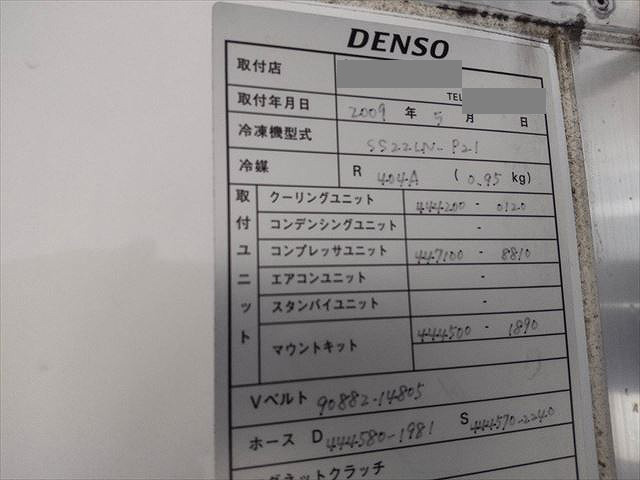 DENSO
取付店
TEL
取付年月日 2009 年 5 月 日
冷凍機型式 SS22LN-P21
冷媒 R 404A ( 0.95 kg)
取付ユニット
クーリングユニット 444200 - 0120
コンデンシングユニット -
コンプレッサユニット 447100 - 8810
エアコンユニット -
スタンバイユニット -
マウントキット 444500 - 1890
Vベルト 90882-14805
ホース D 444580-1981 S 444570-2240
グネットクラッチ